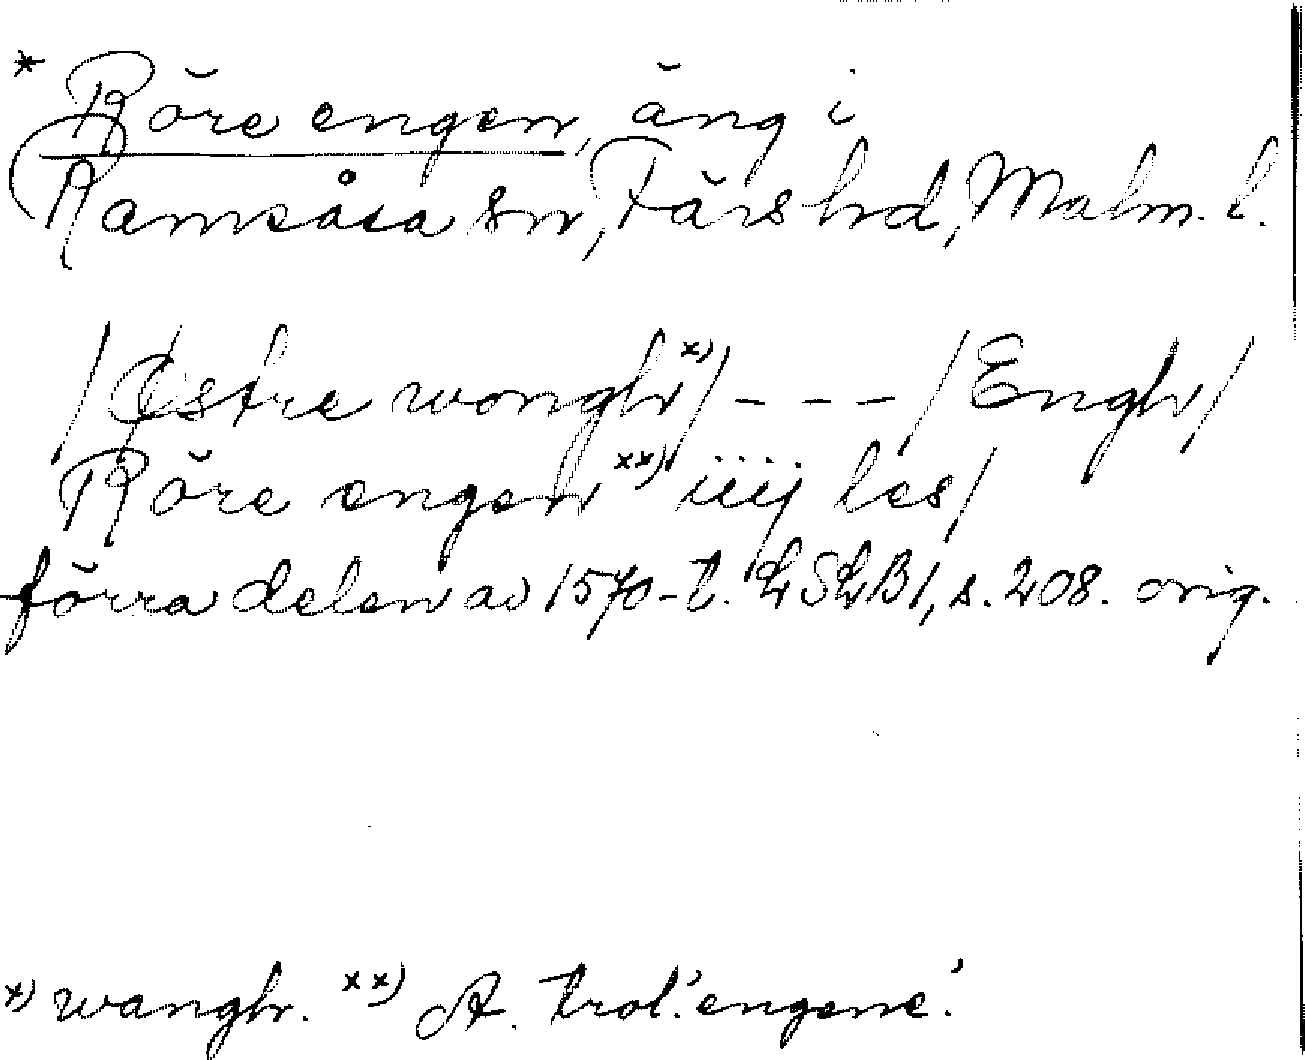 * Röre engen, äng i
Ramsåsa sn, Färs hd, Malm. l.
/Østre wongh x)/ - - - /Engh/
Röre engen xx) iiij les/
förra delen av 1570-t. LSLB1, s. 208. orig.
x) wangh. xx) A. trol. 'engene'.